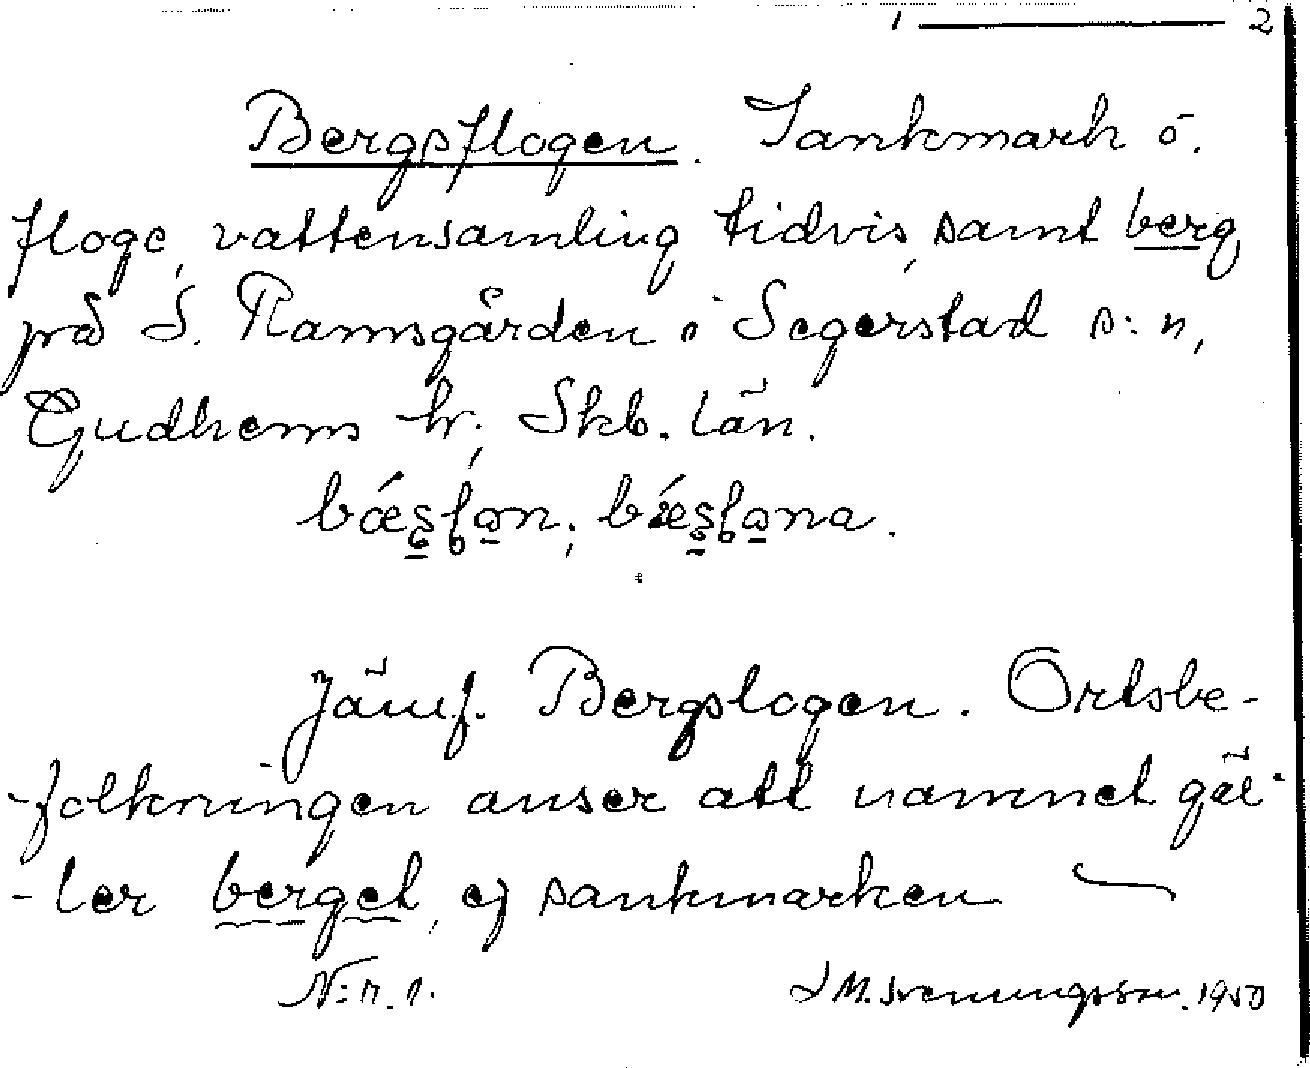 1 — 2
Bergsflogen. Sankmark o.
floge, vattensamling tidvis, samt berg
på S. Ramsgården i Segerstad s:n,
Gudhems hr, Skb. län.
Jämf. Bergslogen. Ortsbe-
-folkningen anser att namnet gäl-
-ler berget, ej sankmarken
N:r. 1. J M. Svenungsson. 1950